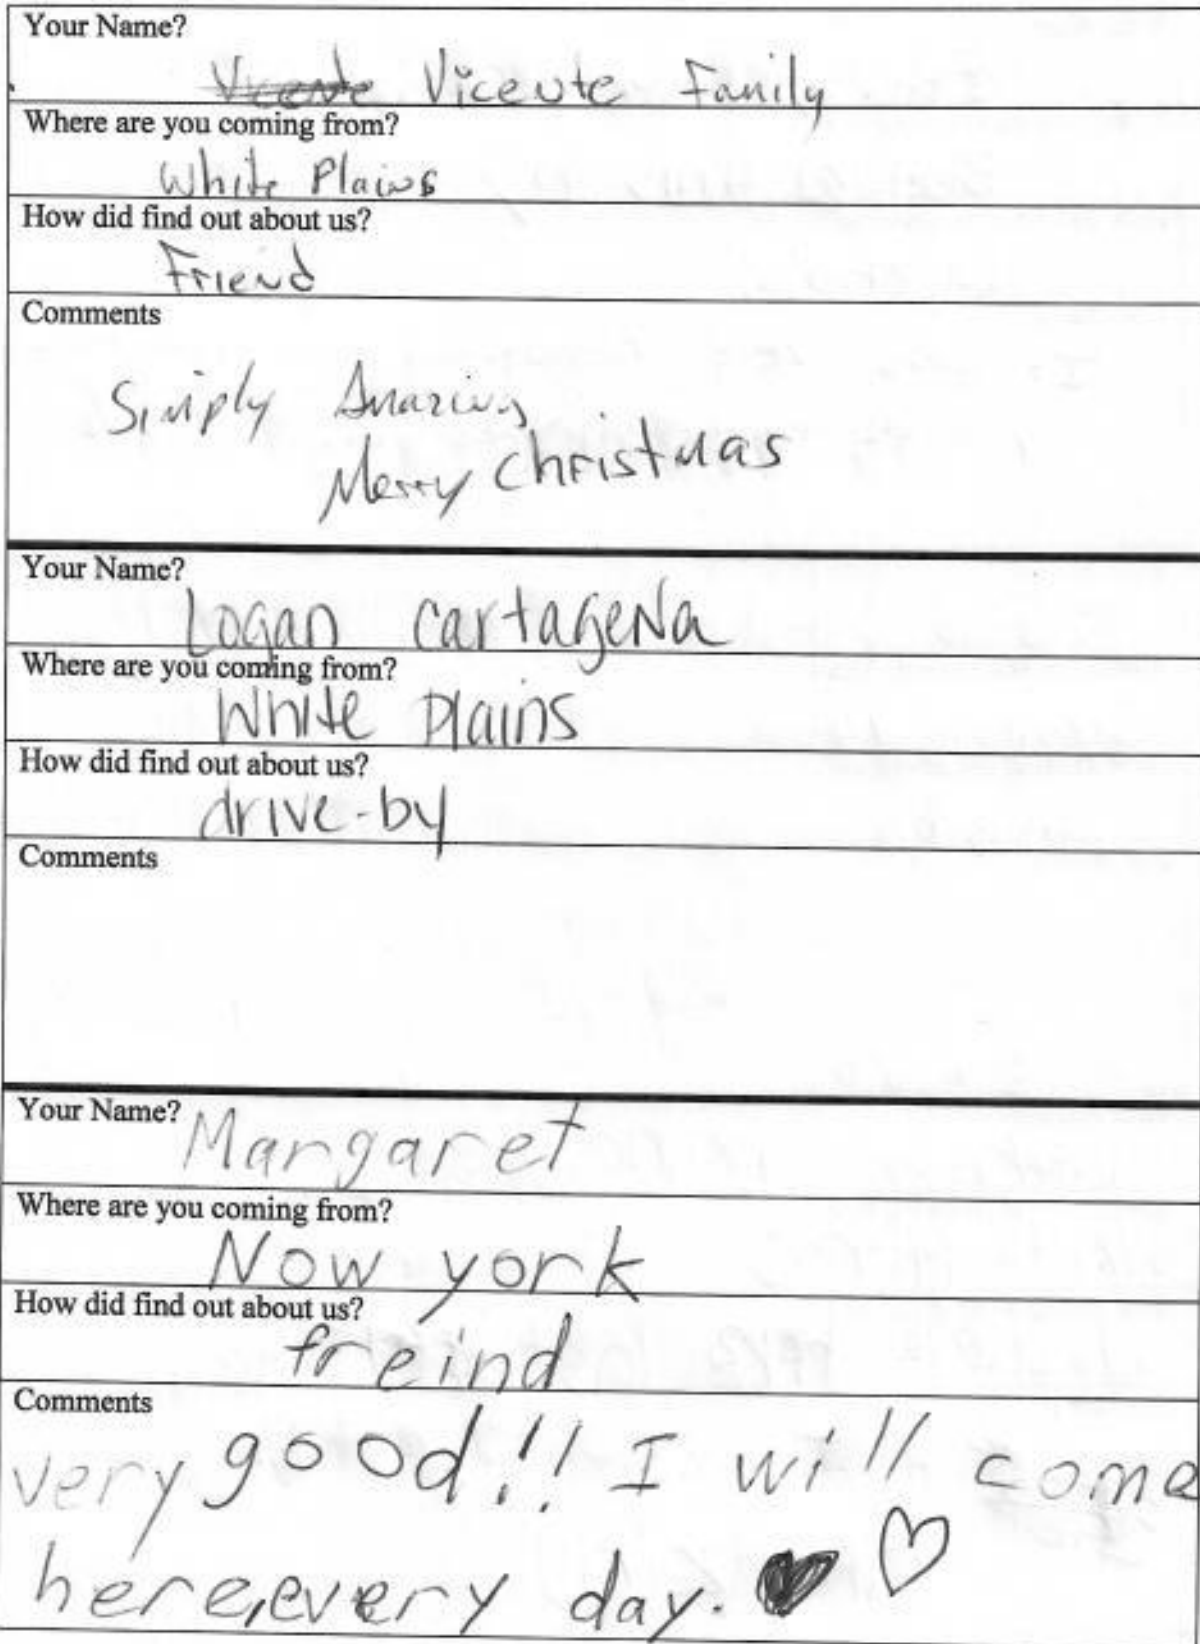 Your Name?
Vicente Vicente Family
Where are you coming from?
White Plains
How did find out about us?
Friend
Comments
Simply Amazing
Merry Christmas
Your Name?
Logan cartageNa
Where are you coming from?
White Plains
How did find out about us?
drive-by
Comments
Your Name? Margaret
Where are you coming from?
Now york
How did find out about us?
freind
Comments
very good!! I will come
here, every day.